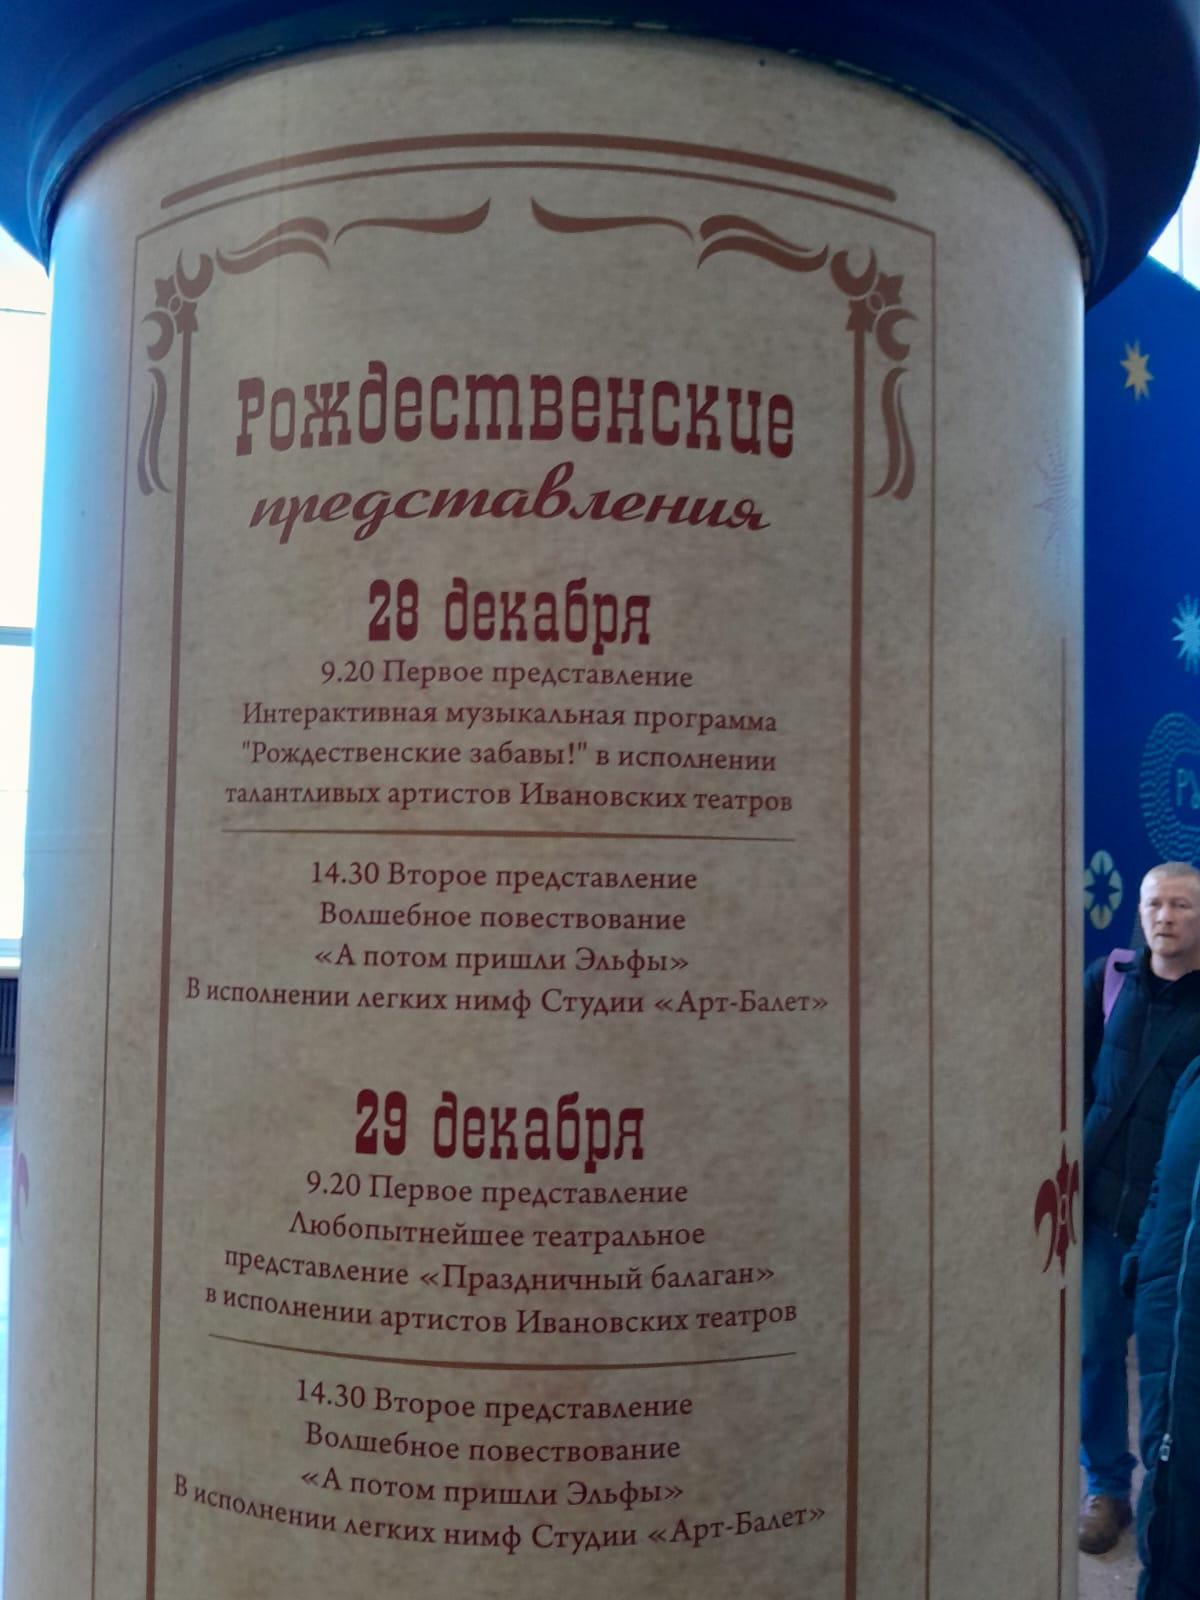 Рождественские
представления
28 декабря
9.20 Первое представление
Интерактивная музыкальная программа
"Рождественские забавы!" в исполнении
талантливых артистов Ивановских театров
14.30 Второе представление
Волшебное повествование
«А потом пришли Эльфы»
В исполнении легких нимф Студии «Арт-Балет»
29 декабря
9.20 Первое представление
Любопытнейшее театральное
представление «Праздничный балаган»
в исполнении артистов Ивановских театров
14.30 Второе представление
Волшебное повествование
«А потом пришли Эльфы»
В исполнении легких нимф Студии «Арт-Балет»